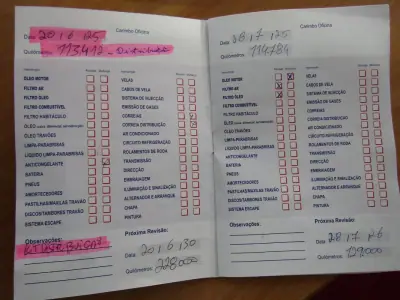 Carimbo Oficina
Data: 20 / 6 / 25
Quilómetros: 113.412 -
Inspecção
ÓLEO MOTOR
FILTRO AR
FILTRO ÓLEO
FILTRO COMBUSTÍVEL
FILTRO HABITÁCULO
ÓLEO
ÓLEO TRAVÕES
LIMPA-PARABRISAS
LÍQUIDO LIMPA-PARABRISAS
ANTICONGELANTE
BATERIA
PNEUS
AMORTECEDORES
PASTILHAS/MAXILAS TRAVÃO
DISCOS/TAMBORES TRAVÃO
SISTEMA ESCAPE
VELAS
CABOS DE VELA
SISTEMA DE INJECÇÃO
EMISSÃO DE GASES
CORREIAS
CORREIA DISTRIBUIÇÃO
AR CONDICIONADO
CIRCUITO REFRIGERAÇÃO
ROLAMENTOS DE RODA
TRANSMISSÃO
DIRECÇÃO
EMBRAIAGEM
ILUMINAÇÃO E SINALIZAÇÃO
ALTERNADOR E ARRANQUE
CHAPA
PINTURA
Observações:
Próxima Revisão:
Data: 20 / 6 / 30
Quilómetros: 228000
Carimbo Oficina
Data: 28 / 7 / 25
Quilómetros: 114784
Inspecção
ÓLEO MOTOR
FILTRO AR
FILTRO ÓLEO
FILTRO COMBUSTÍVEL
FILTRO HABITÁCULO
ÓLEO
ÓLEO TRAVÕES
LIMPA-PARABRISAS
LÍQUIDO LIMPA-PARABRISAS
ANTICONGELANTE
BATERIA
PNEUS
AMORTECEDORES
PASTILHAS/MAXILAS TRAVÃO
DISCOS/TAMBORES TRAVÃO
SISTEMA ESCAPE
VELAS
CABOS DE VELA
SISTEMA DE INJECÇÃO
EMISSÃO DE GASES
CORREIAS
CORREIA DISTRIBUIÇÃO
AR CONDICIONADO
CIRCUITO REFRIGERAÇÃO
ROLAMENTOS DE RODA
TRANSMISSÃO
DIRECÇÃO
EMBRAIAGEM
ILUMINAÇÃO E SINALIZAÇÃO
ALTERNADOR E ARRANQUE
CHAPA
PINTURA
Observações:
Próxima Revisão:
Data: 28 / 7 / 26
Quilómetros: 129000